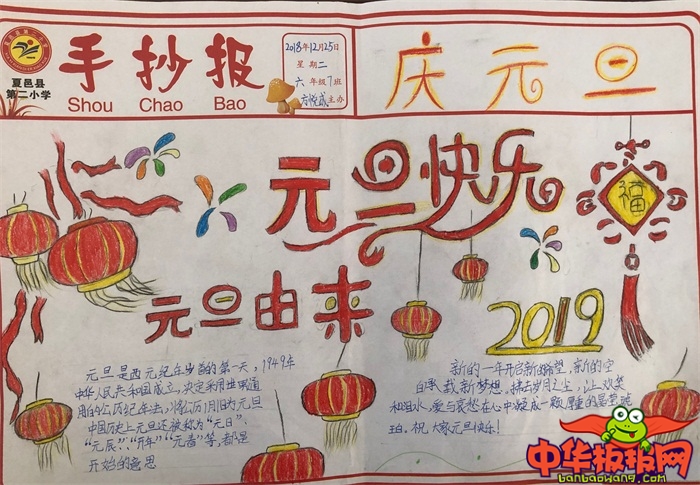 夏邑县
第二小学
手抄报
Shou Chao Bao
2018年12月25日
星期二
六年级7班
主办
庆元旦
元旦快乐
福
元旦由来
2019
元旦是西元纪年岁首的第一天，1949年
中华人民共和国成立，决定采用世界通
用的公历纪年法，将公历1月1日为元旦
中国历史上元旦还被称为“元日”、
“元辰”、“元年”“元春”等，都是
开始的意思
新的一年开启新的希望，新的空
白承载新梦想，拂去岁月之尘，让欢笑
和泪水，爱与哀愁在心中凝成一颗厚重的晶莹琥
珀。祝大家元旦快乐！
中华板报网
banbaowang.com